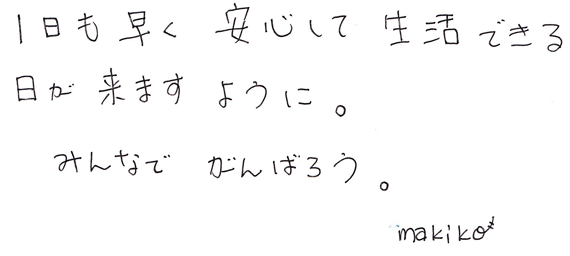 1日も早く 安心して 生活できる
日が来ます ように。
みんなで がんばろう。
makiko*